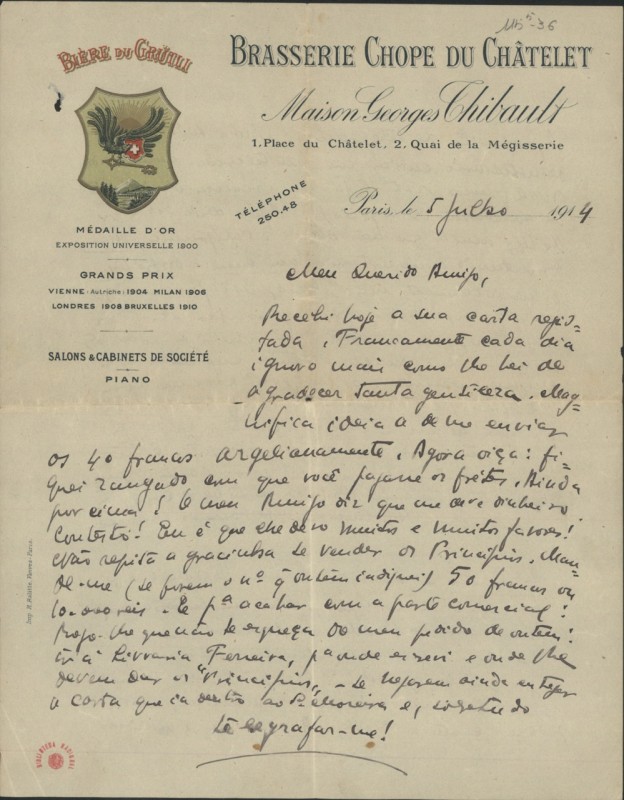 115⁵-36
BIÈRE DU GRÜTLI
BRASSERIE CHOPE DU CHÂTELET
Maison Georges Thibault
1. Place du Châtelet, 2. Quai de la Mégisserie
TÉLÉPHONE
250.48
Paris, le 5 Julho 1914
MÉDAILLE D'OR
EXPOSITION UNIVERSELLE 1900
GRANDS PRIX
VIENNE (Autriche) 1904 MILAN 1906
LONDRES 1908 BRUXELLES 1910
SALONS & CABINETS DE SOCIÉTÉ
PIANO
Meu Querido Amigo,
Recebi hoje a sua carta regis-
tada. Francamente cada dia
ignoro mais como lhe hei de
agradecer tanta gentileza. Mag-
nifica ideia a de me enviar
os 40 francos argelianamente. Agora oiça: fi-
quei zangado com que você pagasse os fretes. Ainda
por cima! E o meu Amigo diz que me deve dinheiro
Contesto! Eu é que lhe devo muitos e muitos favores!
Não repita a gracinha de vender os Principios. Man-
de-me (se forem o nº q ontem indiquei) 50 francos ou
10.000 reis. E pª acabar com a parte comercial:
Rogo-lhe que não se esqueça do meu pedido de ontem:
ir á Livraria Ferreira, pª onde escrevi e onde lhe
devem dar os "Principios". Se fizerem ainda
a carta que ia dentro ao e, sobretudo
telegrafar-me!
BIBLIOTECA NACIONAL